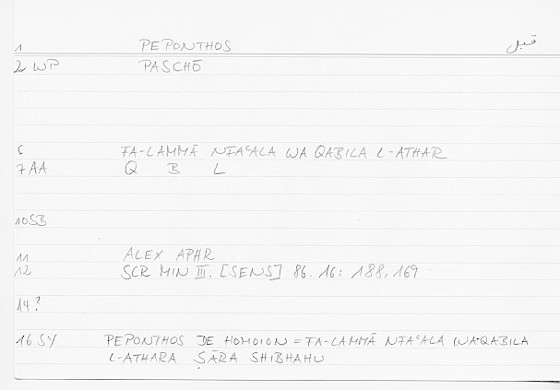 1 PEPONTHOS قبل
2 WP PASCHŌ
6 FA-LAMMĀ NFAʿALA WA QABILA L-ATHAR
7 AA Q B L
10 SB
11 ALEX APHR
12 SCR MIN III. [SENS] 86. 16: 188,169
14 ?
16 SY PEPONTHOS DE HOMOION = FA-LAMMĀ NFAʿALA WA-QABILA
L-ATHARA ṢĀRA SHIBHAHU